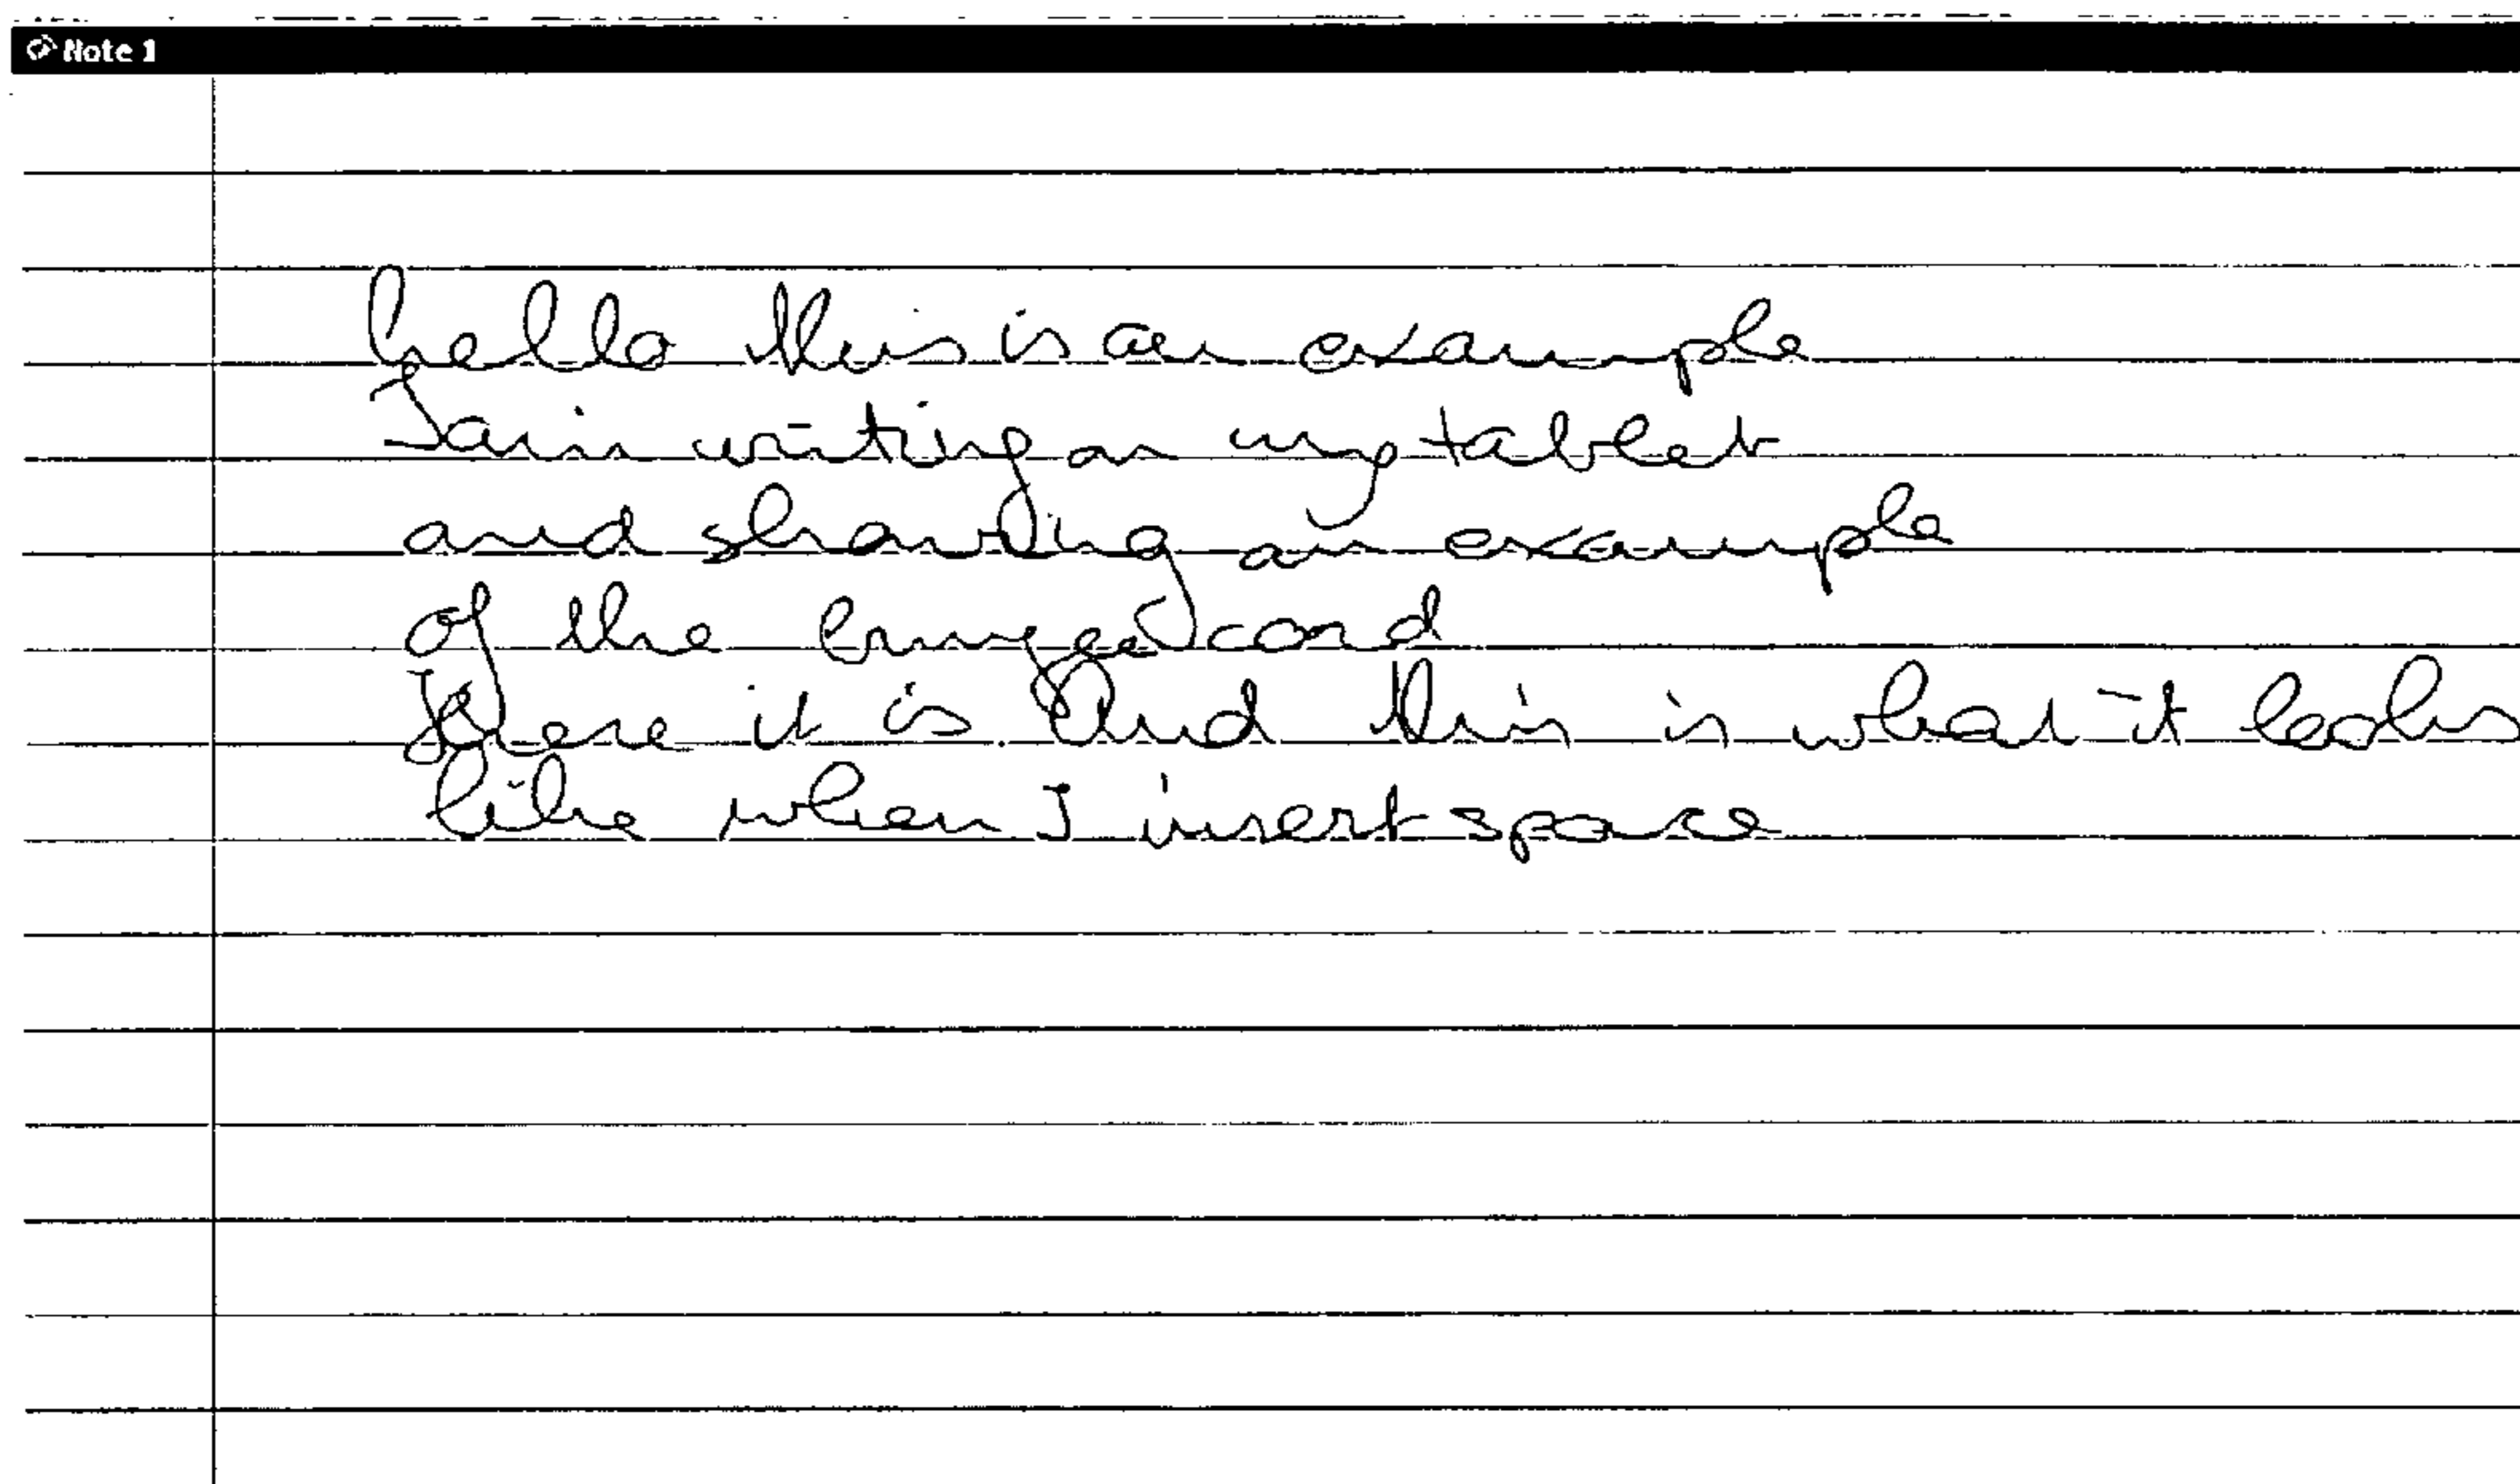 Note 1
hello this is an example
I am writing on my tablet
and sharing an example
of the card
Here it is. And this is what it looks
like when I insert space